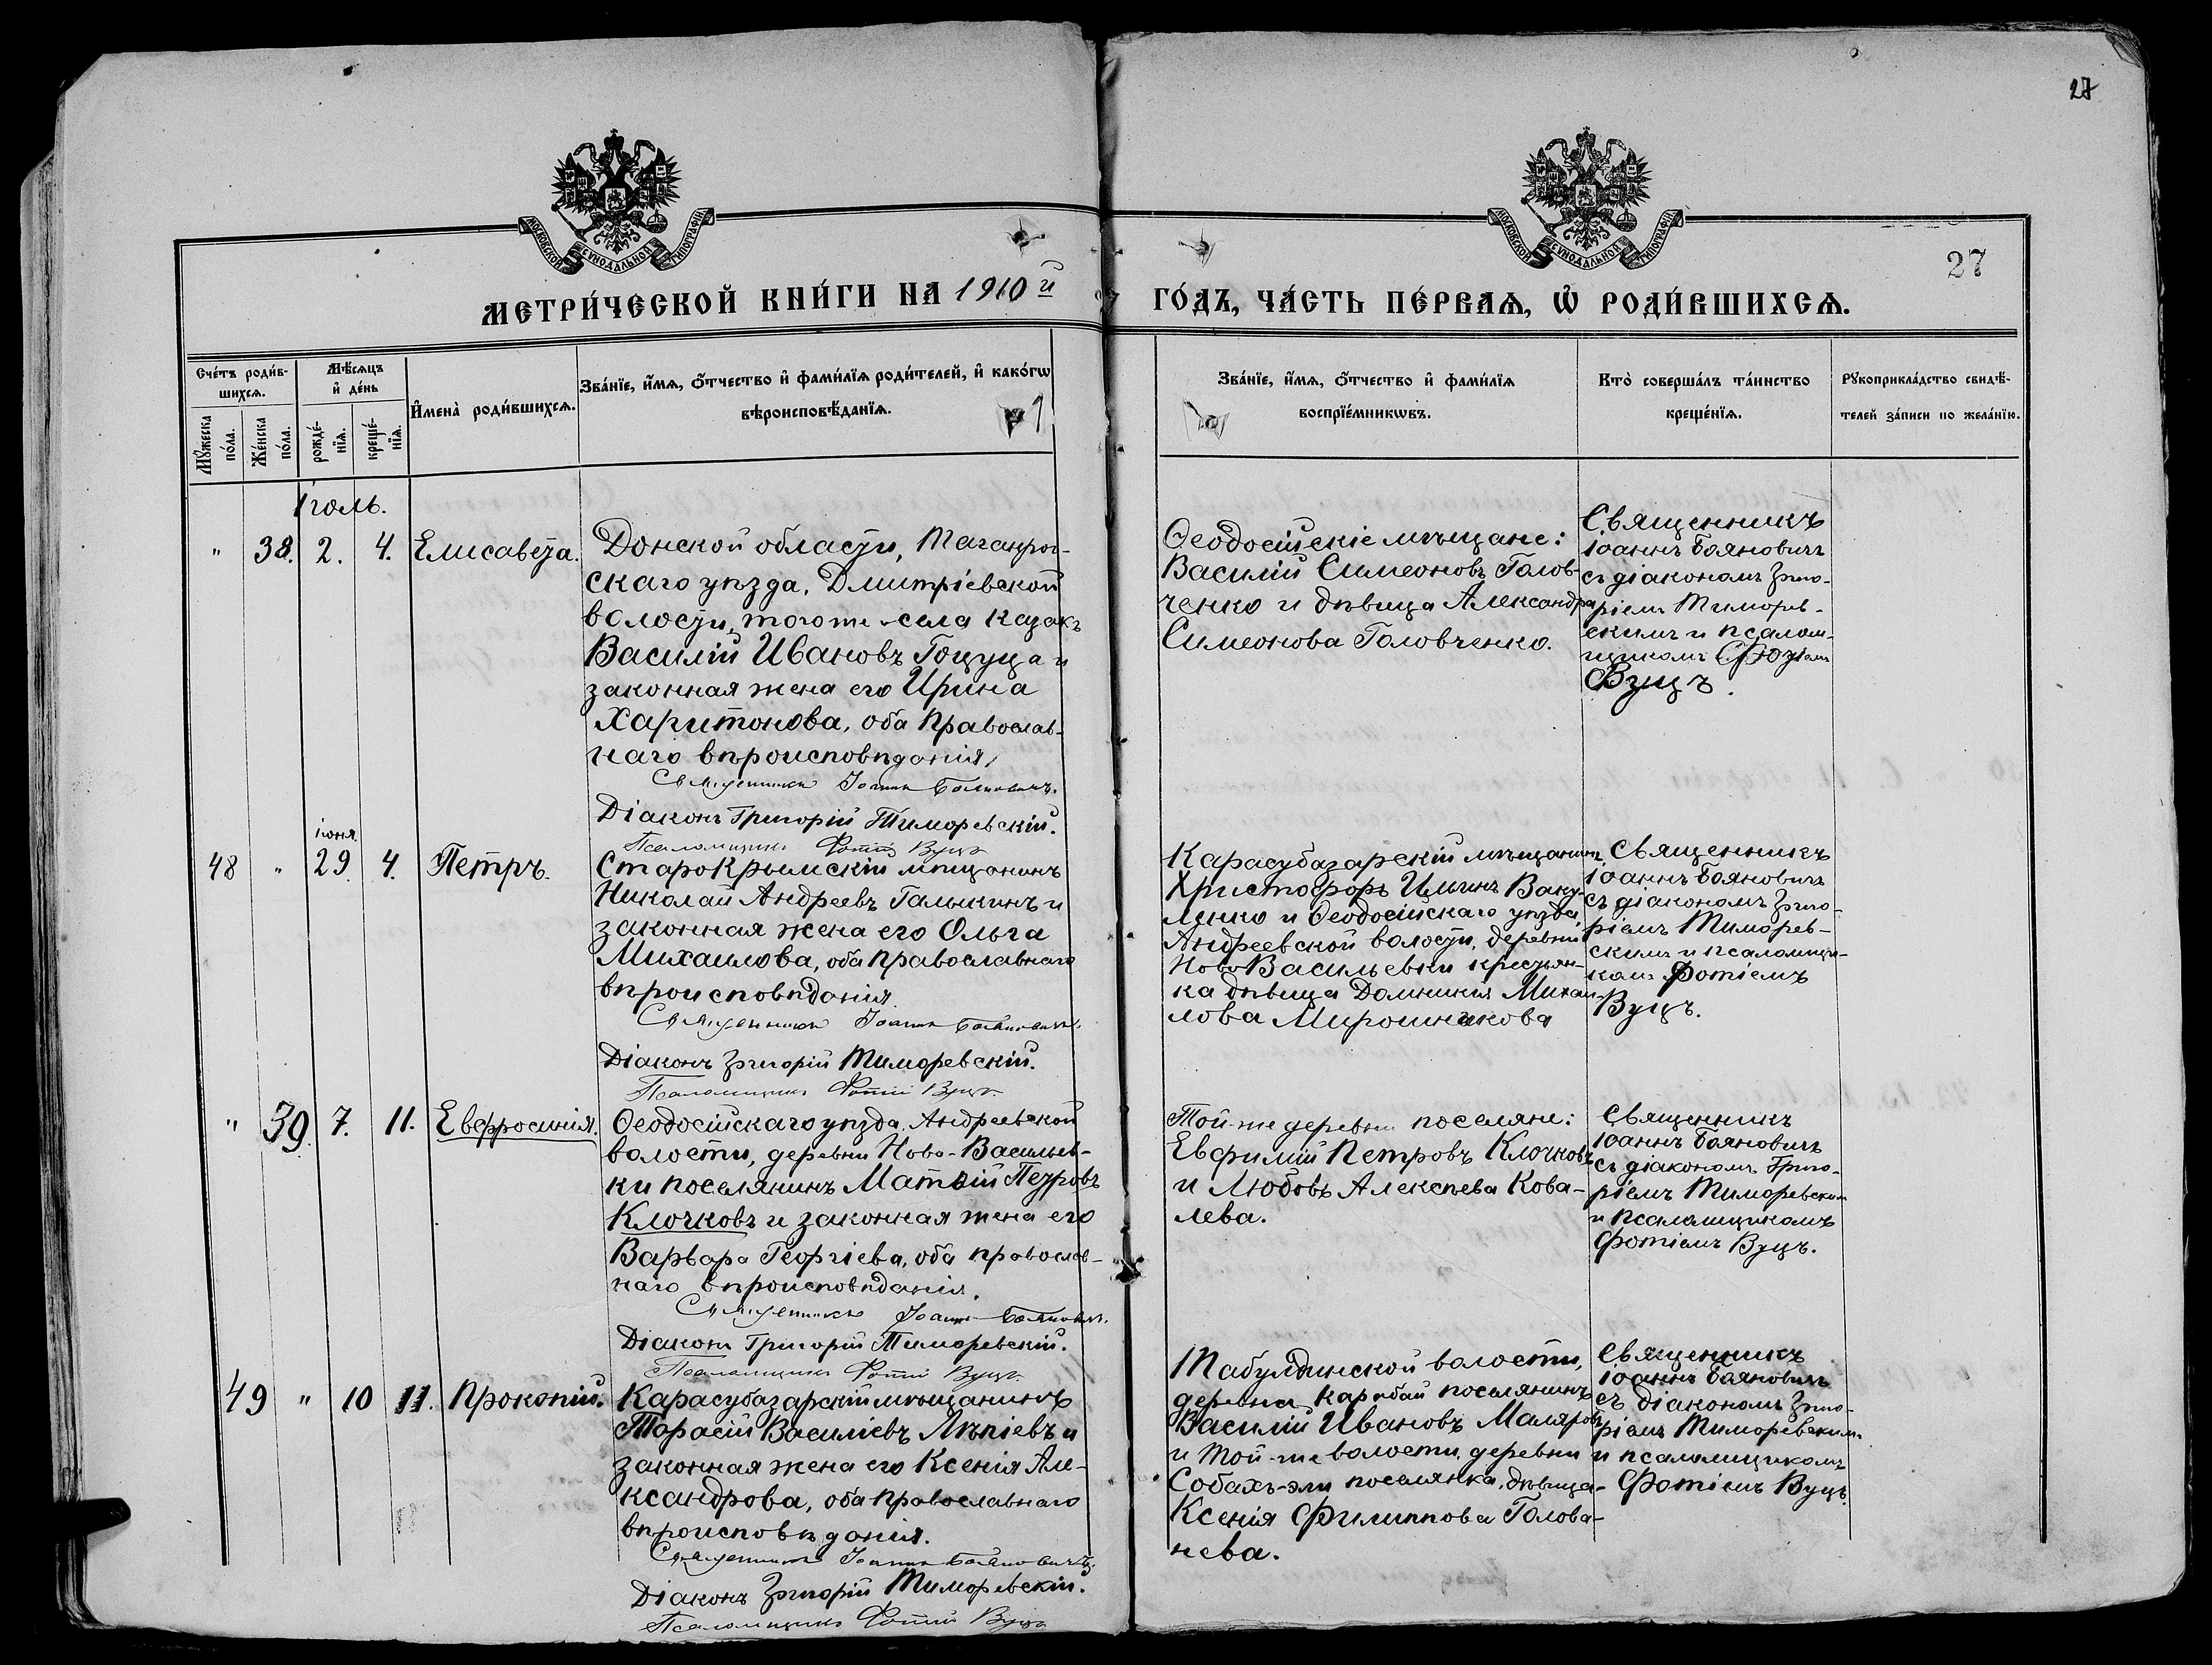 27
27
МОСКОВСКОЙ СѴНОДАЛЬНОЙ ТИПОГРАФІИ
МОСКОВСКОЙ СѴНОДАЛЬНОЙ ТИПОГРАФІИ
МЕТРИ́ЧЕСКОЙ КНИ́ГИ НА 1910й
ГО́ДЪ, ЧА́СТЬ ПЕ́РВАѦ, Ѽ РОДИ́ВШИХСѦ.
Счéтъ роди́в-
шихсѧ.
Мꙋ́жеска
по́ла.
Же́нска
по́ла.
Мѣ́сѧцъ
и҆ де́нь
рожде́-
нїѧ.
креще́-
нїѧ.
И҆мена̀ роди́вшихсѧ.
Зва́нїе, и҆́мѧ, ѻ҆́тчество и҆ фами́лїѧ роди́телей, и҆ како́гѡ
вѣроисповѣ́данїѧ.
Зва́нїе, и҆́мѧ, ѻ҆́тчество и҆ фами́лїѧ
воспрїе́мникѡвъ.
Кто̀ соверша́лъ та́инство
креще́нїѧ.
Рꙋкоприкла́дство свидѣ́-
телей за́писи по жела́нїю.
Іюль.
" 38. 2. 4. Елисавета.
Донской области, Таганрог-
скаго уѣзда, Дмитріевской
волости, того же села казакъ
Василій Ивановъ Гоцуца и
законная жена его Ирина
Харитонова, оба православ-
наго вѣроисповѣданія.
Священникъ Іоаннъ Бояновичъ.
Діаконъ Григорій Тиморевскій.
Псаломщикъ Фотій Вуцъ
Ѳеодосійскіе мѣщане:
Василій Симеоновъ Голов-
ченко и дѣвица Александра
Симеонова Головченко.
Священникъ
Іоаннъ Бояновичъ
съ діакономъ Григо-
ріемъ Тиморев-
скимъ и псалом-
щикомъ Фотіемъ
Вуцъ.
Іюня
48 " 29. 4. Петръ.
Старокрымскій мѣщанинъ
Николай Андреевъ Галыкинъ и
законная жена его Ольга
Михаилова, оба православнаго
вѣроисповѣданія.
Священникъ Іоаннъ Бояновичъ.
Діаконъ Григорій Тиморевскій.
Псаломщикъ Фотій Вуцъ.
Карасубазарскій мѣщанинъ
Христофоръ Ильинъ Ваку-
ленко и Ѳеодосійскаго уѣзда,
Андреевской волости, деревни
Ново Васильевки крестьян-
ка дѣвица Домникия Михаи-
лова Мирошникова
Священникъ
Іоаннъ Бояновичъ
съ діакономъ Григо-
ріемъ Тиморев-
скимъ и псаломщи-
комъ Фотіемъ
Вуцъ.
" 39. 7. 11. Евфросинія.
Ѳеодосійскаго уѣзда, Андреевской
волости, деревни Ново-Васильев-
ки поселянинъ Матѳій Петровъ
Клочковъ и законная жена его
Варвара Георгіева, оба православ-
наго вѣроисповѣданія.
Священникъ Іоаннъ Бояновичъ.
Діаконъ Григорій Тиморевскій.
Псаломщикъ Фотій Вуцъ.
Той-же деревни поселяне:
Евфимій Петровъ Клочковъ
и Любовь Алексѣева Кова-
лева.
Священникъ
Іоаннъ Бояновичъ
съ діакономъ Григо-
ріемъ Тиморевскимъ
и псаломщикомъ
Фотіемъ Вуцъ.
49 " 10 11. Прокопій.
Карасубазарскій мѣщанинъ
Тарасій Василіевъ Лѣпіевъ и
законная жена его Ксенія Але-
ксандрова, оба православнаго
вѣроисповѣданія.
Священникъ Іоаннъ Бояновичъ.
Діаконъ Григорій Тиморевскій.
Псаломщикъ Фотій Вуцъ
Табулдинской волости,
деревни Карабай поселянинъ
Василій Ивановъ Маляровъ
и той-же волости, деревни
Собахъ-эли поселянка, дѣвица
Ксенія Филиппова Голова-
нева.
Священникъ
Іоаннъ Бояновичъ
съ діакономъ Григо-
ріемъ Тиморевскимъ
и псаломщикомъ
Фотіемъ Вуцъ.